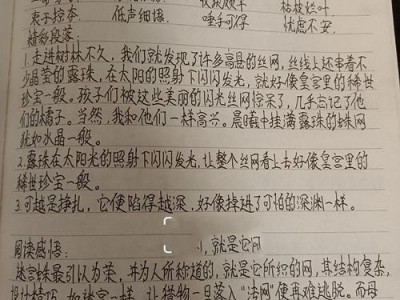 枯枝烂叶
低声细语
唾手可得
忧虑不安
精彩段落:
1.走进树林不久,我们就发现了许多高悬的丝网,丝线上还串着不
少晶莹的露珠,在太阳的照射下闪闪发光,就好像皇宫里的稀世
珍宝一般。孩子们被这些美丽的闪光丝网惊呆了,几乎忘记了他
们的橘子。当然,我和他们一样高兴。晨曦中挂满露珠的蛛网
犹如水晶一般。
2.露珠在太阳光的照射下闪闪发光,让整个丝网看上去好像皇宫里的
稀世珍宝一般。
3.可越是挣扎,它便陷得越深,好像掉进了可怕的深渊一样。
阅读感悟:
,就是它网
迷宫蛛最引以为荣,并为人所称道的,就是它所织的网,其结构复杂,
设计精巧,如迷宫一样,让猎物一旦落入“法网”便再难逃脱。而母